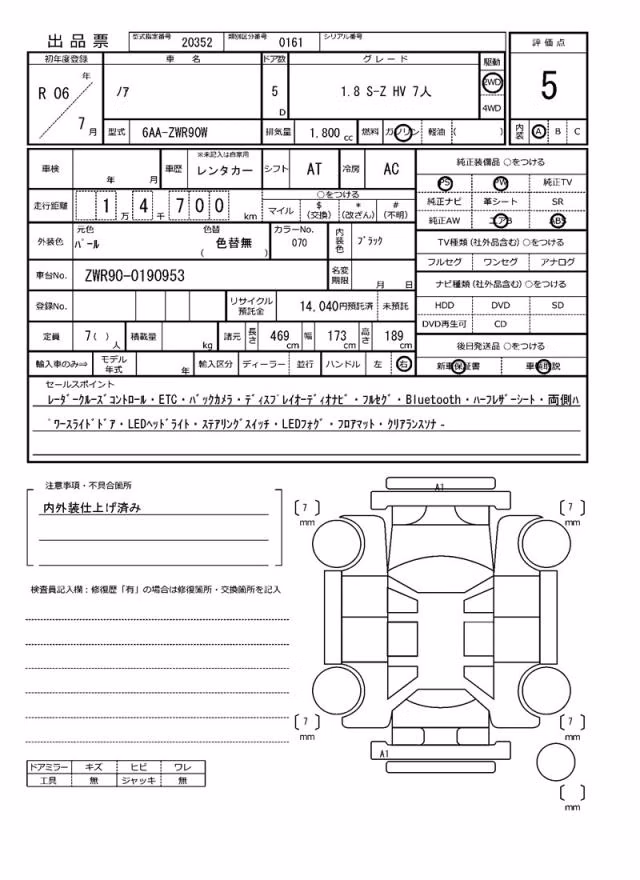 出品票 型式指定番号 20352 類別区分番号 0161 シリアル番号
初年度登録 車名 ドア数 グレード 駆動 評価点
R 06 年 7 月 ノア 5 D 1.8 S-Z HV 7人 2WD 4WD 5
型式 6AA-ZWR90W 排気量 1.800 cc 燃料 ガソリン 軽油 ( ) 内装 A B C
車検 年 月 車歴 ※未記入は自家用 レンタカー シフト AT 冷房 AC 純正装備品 ○をつける
PS PW 純正TV
走行距離 1 万 4 千 7 0 0 km ○をつける 純正ナビ 革シート SR
マイル $ (交換) * (改ざん) # (不明) 純正AW エアB ABS
外装色 元色 パール 色替 色替無 ( ) カラーNo. 070 内装色 ブラック TV種類 (社外品含む) ○をつける
フルセグ ワンセグ アナログ
車台No. ZWR90-0190953 名変期限 月 日 ナビ種類 (社外品含む) ○をつける
登録No. リサイクル預託金 14,040円預託済 未預託 HDD DVD SD
DVD再生可 CD
定員 7 ( ) 人 積載量 kg 諸元 長さ 469 cm 幅 173 cm 高さ 189 cm 後日発送品 ○をつける
輸入車のみ⇒ モデル年式 年 輸入区分 ディーラー 並行 ハンドル 左 右 新車保証書 車輌取説
セールスポイント
レーダークルーズコントロール・ETC・バックカメラ・ディスプレイオーディオナビ・フルセグ・Bluetooth・ハーフレザーシート・両側ハ
゜ワースライドドア・LEDヘッドライト・ステアリングスイッチ・LEDフォグ・フロアマット・クリアランスソナ-
注意事項・不具合箇所
内外装仕上げ済み
検査員記入欄：修復歴「有」の場合は修復箇所・交換箇所を記入
A1
[ 7 ] mm [ 7 ] mm
[ 7 ] mm [ 7 ] mm
A1
[ ] mm
ドアミラー キズ ヒビ ワレ
工具 無 ジャッキ 無